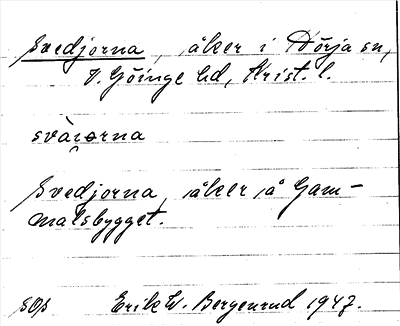 Svedjorna, åker i Dörja sn,
V. Göinge hd, Krist. l.
svàı̯ơrna
Svedjorna, åker å Gam-
malsbygget.
SOS Erik W. Bergenrud 1947.